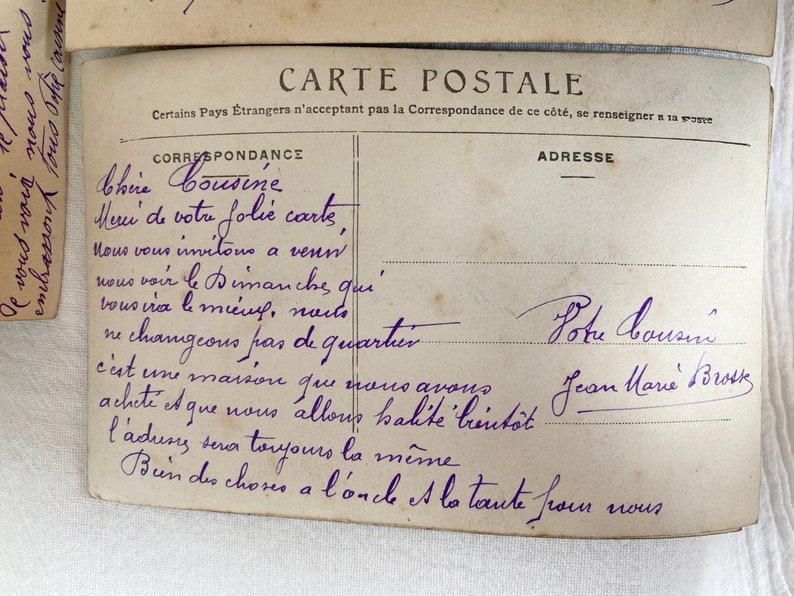 CARTE POSTALE
Certains Pays Étrangers n'acceptant pas la Correspondance de ce côté, se renseigner à la Poste
CORRESPONDANCE
ADRESSE
Chère Cousine
Merci de votre jolie carte,
nous vous invitons a venir
nous voir le Dimanche, qui
vous ira le mieux. nous
ne changeons pas de quartier
c'est une maison que nous avons
acheté et que nous allons habité bientôt
l'adresse sera toujours la même
Bien des choses a l'oncle et la tante pour nous
Votre Cousin
Jean Marié Brosse
Je vous voir nous vous
embrassons tous Votre Cousine